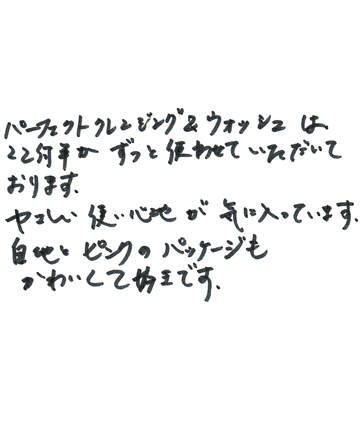 パーフェクトクレンジング&ウォッシュは
22付年かずっと使わせていただいて
おります。
やさしい使い心地が気に入っています。
白地にピンクのパッケージも
かわいくて好きです。